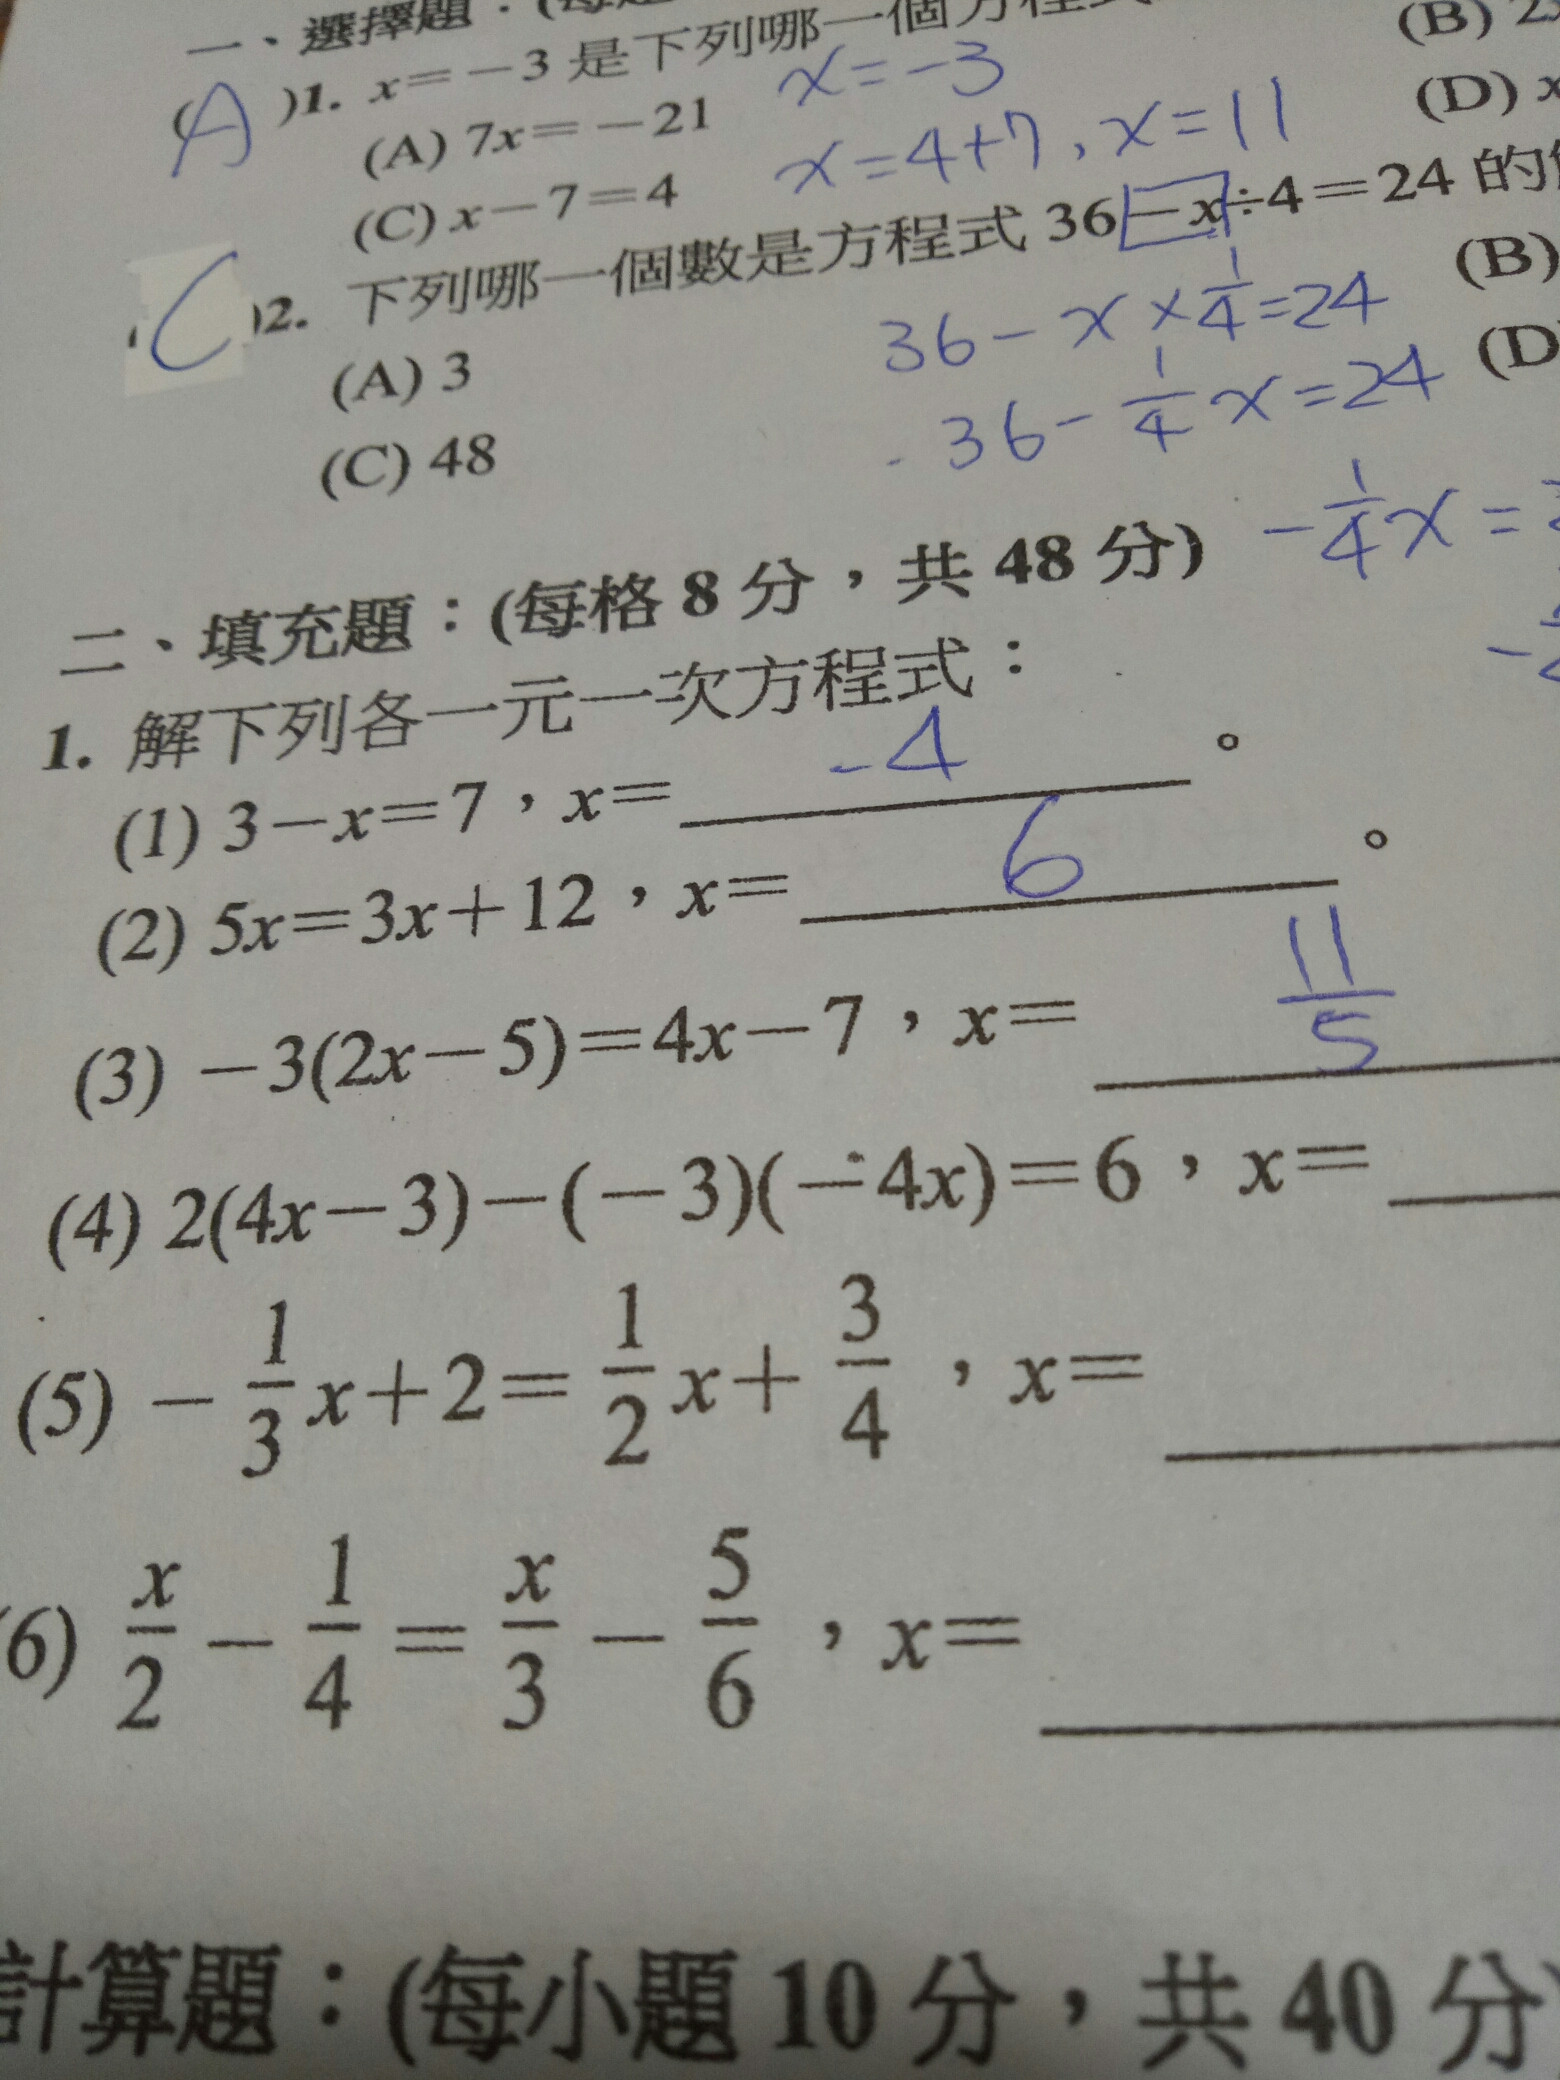 一、選擇題：(每
(A)1. x＝－3 是下列哪一個方程式
(A) 7x＝－21 x=-3
(B) 2
(C) x－7＝4 x=4+7, x=11
(D) x
(C)2. 下列哪一個數是方程式 36－x÷4＝24 的
(A) 3 36-x×1/4=24
(B)
(C) 48 36-1/4x=24
(D
-1/4x=
二、填充題：(每格 8 分，共 48 分)
1. 解下列各一元一次方程式：
(1) 3－x＝7，x＝-4。
(2) 5x＝3x＋12，x＝6。
(3) －3(2x－5)＝4x－7，x＝11/5
(4) 2(4x－3)－(－3)(－4x)＝6，x＝
(5) －1/3x＋2＝1/2x＋3/4，x＝
(6) x/2－1/4＝x/3－5/6，x＝
計算題：(每小題 10 分，共 40 分)